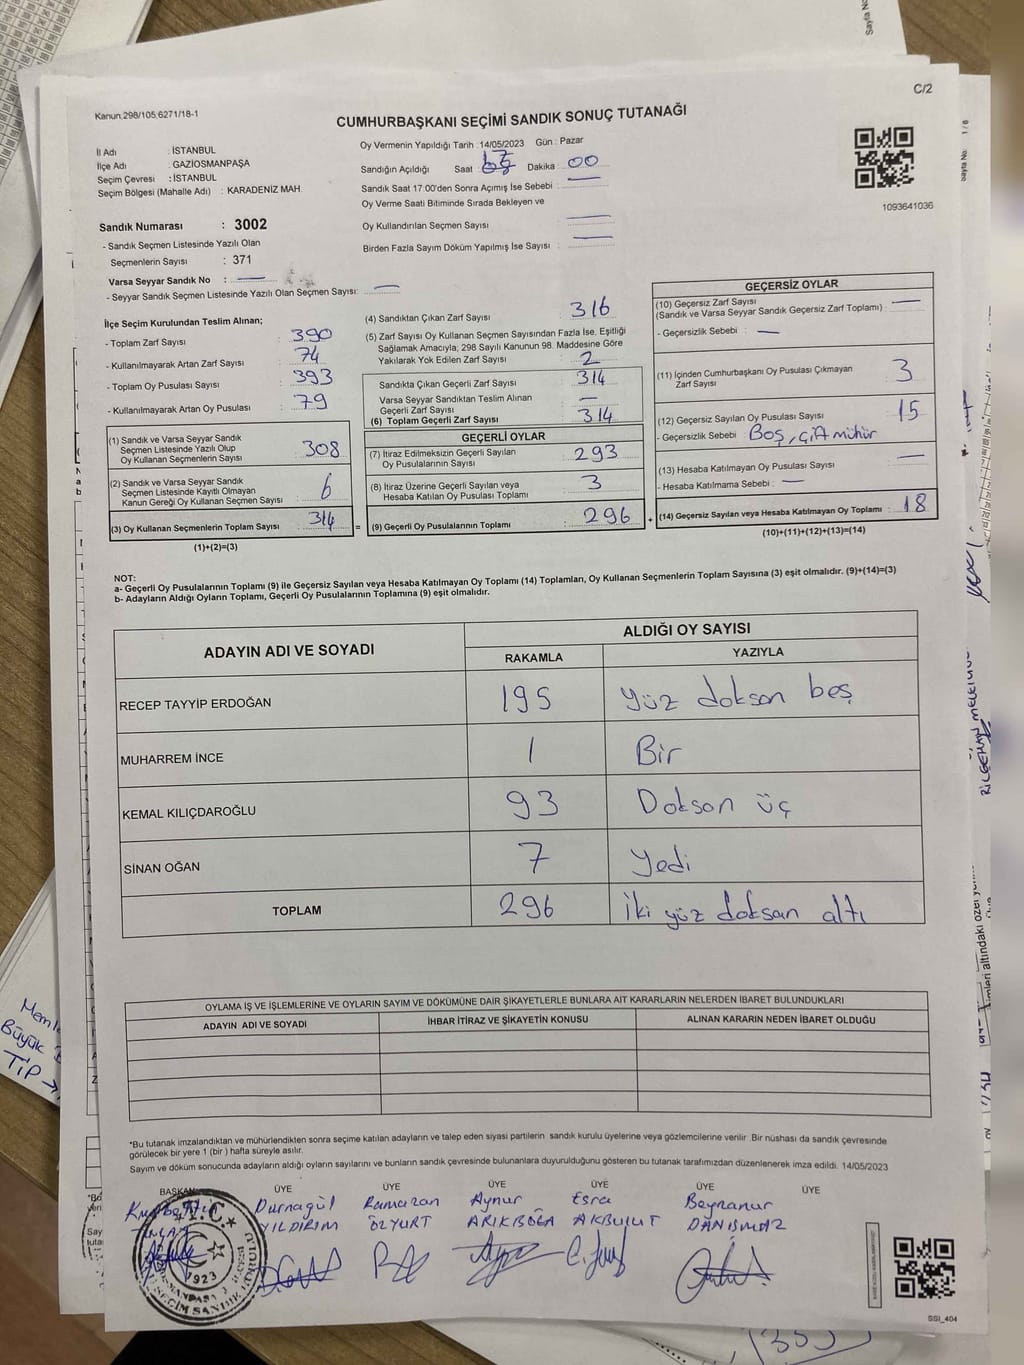 C/2
Kanun,298/105,6271/18-1
CUMHURBAŞKANI SEÇİMİ SANDIK SONUÇ TUTANAĞI
İl Adı : İSTANBUL
İlçe Adı : GAZİOSMANPAŞA
Seçim Çevresi : İSTANBUL
Seçim Bölgesi (Mahalle Adı) : KARADENİZ MAH.
Sandık Numarası : 3002
- Sandık Seçmen Listesinde Yazılı Olan
Seçmenlerin Sayısı : 371
Varsa Seyyar Sandık No : —
- Seyyar Sandık Seçmen Listesinde Yazılı Olan Seçmen Sayısı: —
Oy Vermenin Yapıldığı Tarih : 14/05/2023 Gün : Pazar
Sandığın Açıldığı Saat Dakika : 00
Sandık Saat 17:00'den Sonra Açımış İse Sebebi : —
Oy Verme Saati Bitiminde Sırada Bekleyen ve
Oy Kullandırılan Seçmen Sayısı : —
Birden Fazla Sayım Döküm Yapılmış İse Sayısı : —
1093641036
İlçe Seçim Kurulundan Teslim Alınan;
- Toplam Zarf Sayısı : 390
- Kullanılmayarak Artan Zarf Sayısı : 74
- Toplam Oy Pusulası Sayısı : 393
- Kullanılmayarak Artan Oy Pusulası : 79
(1) Sandık ve Varsa Seyyar Sandık
Seçmen Listesinde Yazılı Olup
Oy Kullanan Seçmenlerin Sayısı : 308
(2) Sandık ve Varsa Seyyar Sandık
Seçmen Listesinde Kayıtlı Olmayan
Kanun Gereği Oy Kullanan Seçmen Sayısı : 6
(3) Oy Kullanan Seçmenlerin Toplam Sayısı : 314
(1)+(2)=(3)
(4) Sandıktan Çıkan Zarf Sayısı : 316
(5) Zarf Sayısı Oy Kullanan Seçmen Sayısından Fazla İse, Eşitliği
Sağlamak Amacıyla; 298 Sayılı Kanunun 98. Maddesine Göre
Yakılarak Yok Edilen Zarf Sayısı : 2
Sandıkta Çıkan Geçerli Zarf Sayısı : 314
Varsa Seyyar Sandıktan Teslim Alınan
Geçerli Zarf Sayısı : —
(6) Toplam Geçerli Zarf Sayısı : 314
GEÇERLİ OYLAR
(7) İtiraz Edilmeksizin Geçerli Sayılan
Oy Pusulalarının Sayısı : 293
(8) İtiraz Üzerine Geçerli Sayılan veya
Hesaba Katılan Oy Pusulası Toplamı : 3
= (9) Geçerli Oy Pusulalarının Toplamı : 296 +
GEÇERSİZ OYLAR
(10) Geçersiz Zarf Sayısı
(Sandık ve Varsa Seyyar Sandık Geçersiz Zarf Toplamı) : —
- Geçersizlik Sebebi : —
(11) İçinden Cumhurbaşkanı Oy Pusulası Çıkmayan
Zarf Sayısı : 3
(12) Geçersiz Sayılan Oy Pusulası Sayısı : 15
- Geçersizlik Sebebi : Boş, çift mühür
(13) Hesaba Katılmayan Oy Pusulası Sayısı : —
- Hesaba Katılmama Sebebi : —
(14) Geçersiz Sayılan veya Hesaba Katılmayan Oy Toplamı : 18
(10)+(11)+(12)+(13)=(14)
NOT:
a- Geçerli Oy Pusulalarının Toplamı (9) ile Geçersiz Sayılan veya Hesaba Katılmayan Oy Toplamı (14) Toplamları, Oy Kullanan Seçmenlerin Toplam Sayısına (3) eşit olmalıdır. (9)+(14)=(3)
b- Adayların Aldığı Oyların Toplamı, Geçerli Oy Pusulalarının Toplamına (9) eşit olmalıdır.
ADAYIN ADI VE SOYADI ALDIĞI OY SAYISI
RAKAMLA YAZIYLA
RECEP TAYYİP ERDOĞAN 195 yüz doksan beş
MUHARREM İNCE 1 Bir
KEMAL KILIÇDAROĞLU 93 Doksan üç
SİNAN OĞAN 7 Yedi
TOPLAM 296 iki yüz doksan altı
OYLAMA İŞ VE İŞLEMLERİNE VE OYLARIN SAYIM VE DÖKÜMÜNE DAİR ŞİKAYETLERLE BUNLARA AİT KARARLARIN NELERDEN İBARET BULUNDUKLARI
ADAYIN ADI VE SOYADI İHBAR İTİRAZ VE ŞİKAYETİN KONUSU ALINAN KARARIN NEDEN İBARET OLDUĞU
*Bu tutanak imzalandıktan ve mühürlendikten sonra seçime katılan adayların ve talep eden siyasi partilerin sandık kurulu üyelerine veya gözlemcilerine verilir. Bir nüshası da sandık çevresinde
görülecek bir yere 1 (bir ) hafta süreyle asılır.
Sayım ve döküm sonucunda adayların aldığı oyların sayılarını ve bunların sandık çevresinde bulunanlara duyurulduğunu gösteren bu tutanak tarafımızdan düzenlenerek imza edildi. 14/05/2023
BAŞKAN ÜYE ÜYE ÜYE ÜYE ÜYE ÜYE
Durnagül Ramazan Aynur Esra Beyzanur
YILDIRIM ÖZYURT ARIKBOĞA AKBULUT DANIŞMAZ
T.C.
1923
SSI_404
Büyük
TİP →